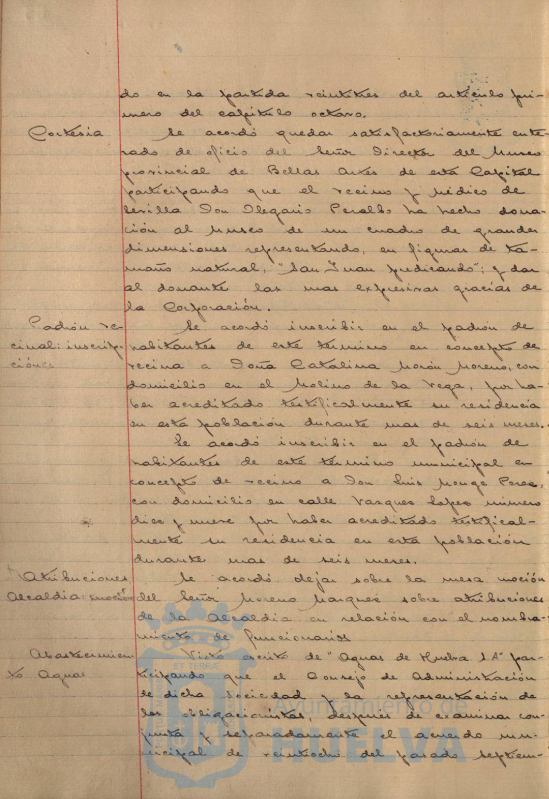 do en la partida veintitres del artículo pri-
mero del capítulo octavo.
Cortesia Se acordó quedar satisfactoriamente ente-
rado de oficio del Señor Director del Museo
provincial de Bellas Artes de esta Capital
participando que el vecino y médico de
Sevilla Don Olegario Peralbo ha hecho dona-
ción al Museo de un cuadro de grandes
dimensiones representando, en figuras de ta-
maño natural, "San Juan predicando"; y dar
al donante las mas expresivas gracias de
la Corporación.
Padrón ve- Se acordó inscribir en el padron de
cinal: inscrip- habitantes de este término en concepto de
ciones vecina a Doña Catalina Morón Moreno, con
domicilio en el Molino de la Vega, por ha-
ber acreditado testificalmente su residencia
en esta población durante mas de seis meses.
Se acordó inscribir en el padron de
habitantes de este término municipal en
concepto de vecino a Don Luis Monge Perea,
con domicilio en calle Vazquez Lopez número
diez y nueve por haber acreditado testifical-
mente su residencia en esta población
durante mas de seis meses.
Atribuciones Se acordó dejar sobre la mesa moción
Alcaldia: moción del Señor Moreno Marquez sobre atribuciones
de la Alcaldia en relación con el nombra-
miento de funcionarios
Abastecimien- Visto escrito de "Aguas de Huelva S.A" par-
to Aguas ticipando que el Consejo de Administración
de dicha Sociedad y la representación de
los obligacionistas, después de examinar con-
junta y separadamente el acuerdo mu-
nicipal de veintiocho del pasado septiem-
Ayuntamiento de
HUELVA